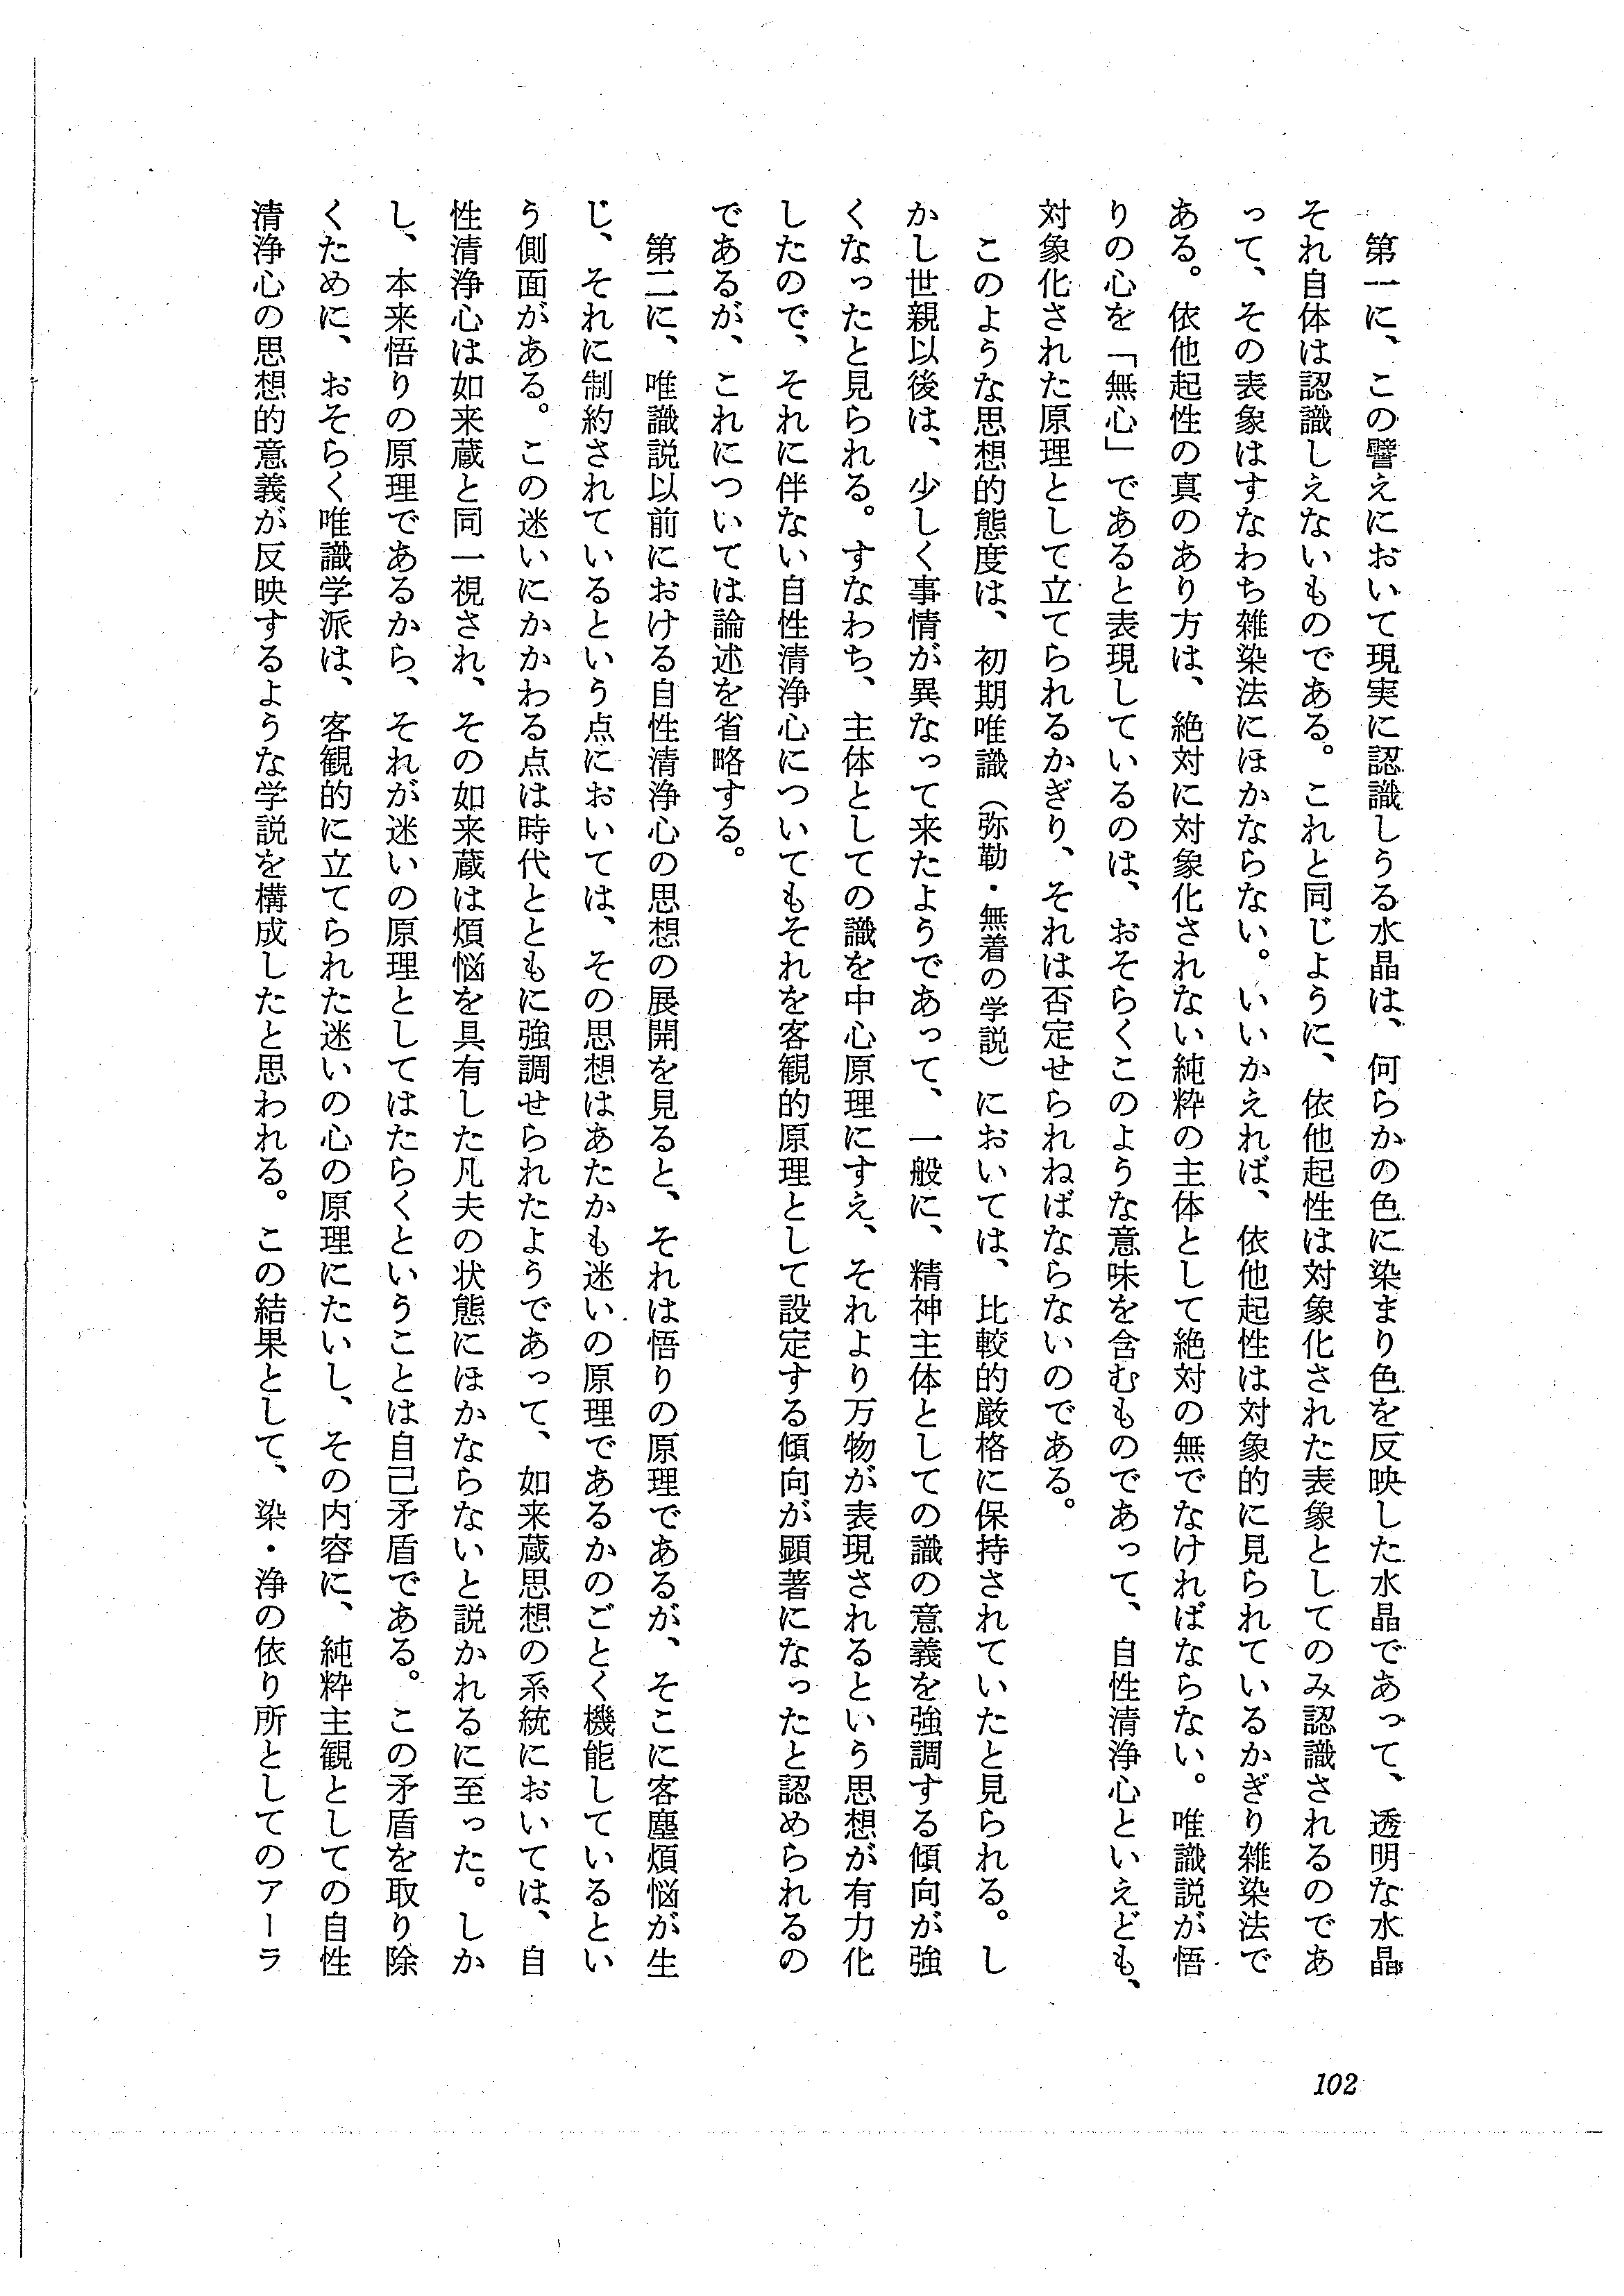 第一に、この譬えにおいて現実に認識しうる水晶は、何らかの色に染まり色を反映した水晶であって、透明な水晶
それ自体は認識しえないものである。これと同じように、依他起性は対象化された表象としてのみ認識されるのであ
って、その表象はすなわち雑染法にほかならない。いいかえれば、依他起性は対象的に見られているかぎり雑染法で
ある。依他起性の真のあり方は、絶対に対象化されない純粋の主体として絶対の無でなければならない。唯識説が悟
りの心を「無心」であると表現しているのは、おそらくこのような意味を含むものであって、自性清浄心といえども、
対象化された原理として立てられるかぎり、それは否定せられねばならないのである。
このような思想的態度は、初期唯識（弥勒・無着の学説）においては、比較的厳格に保持されていたと見られる。し
かし世親以後は、少しく事情が異なって来たようであって、一般に、精神主体としての識の意義を強調する傾向が強
くなったと見られる。すなわち、主体としての識を中心原理にすえ、それより万物が表現されるという思想が有力化
したので、それに伴ない自性清浄心についてもそれを客観的原理として設定する傾向が顕著になったと認められるの
であるが、これについては論述を省略する。
第二に、唯識説以前における自性清浄心の思想の展開を見ると、それは悟りの原理であるが、そこに客塵煩悩が生
じ、それに制約されているという点においては、その思想はあたかも迷いの原理であるかのごとく機能しているとい
う側面がある。この迷いにかかわる点は時代とともに強調せられたようであって、如来蔵思想の系統においては、自
性清浄心は如来蔵と同一視され、その如来蔵は煩悩を具有した凡夫の状態にほかならないと説かれるに至った。しか
し、本来悟りの原理であるから、それが迷いの原理としてはたらくということは自己矛盾である。この矛盾を取り除
くために、おそらく唯識学派は、客観的に立てられた迷いの心の原理にたいし、その内容に、純粋主観としての自性
清浄心の思想的意義が反映するような学説を構成したと思われる。この結果として、染・浄の依り所としてのアーラ
102